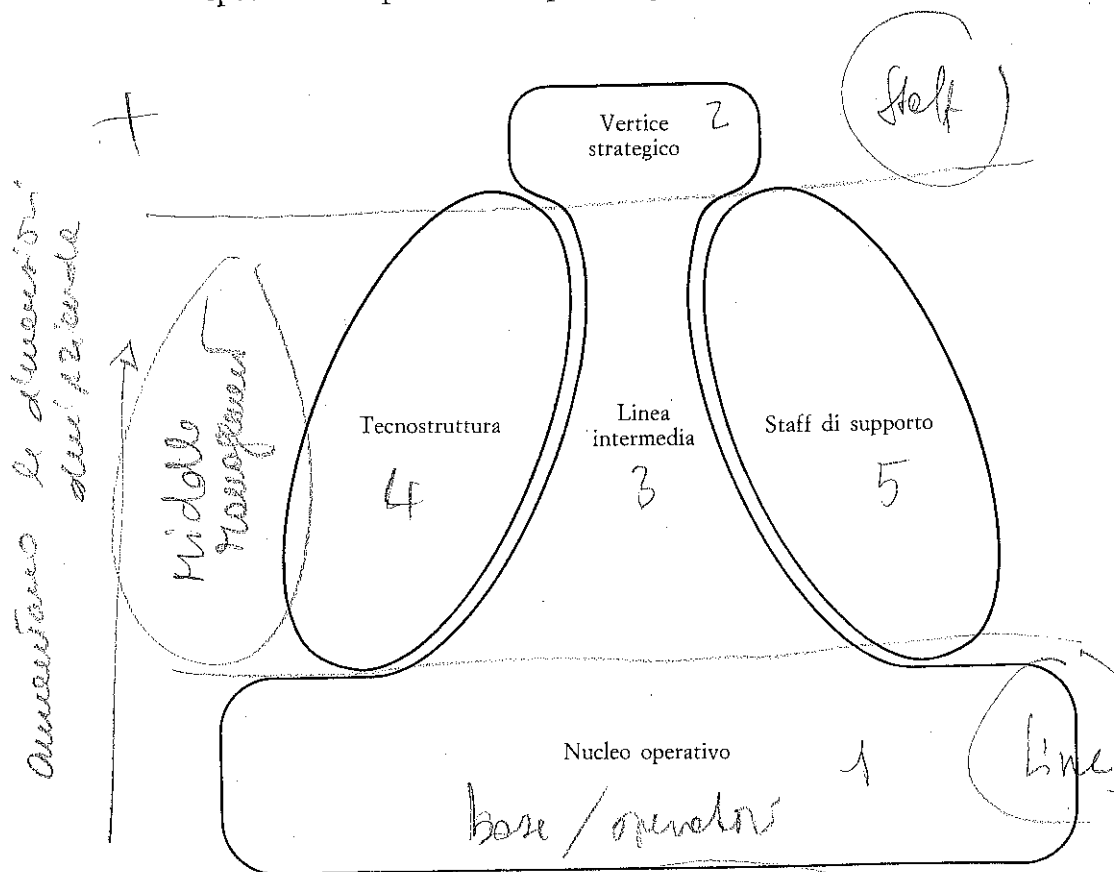 +
Vertice 2
strategico
Staff
aumentano le dimensioni
Middle
Management
Tecnostruttura
4
Linea
intermedia
3
Staff di supporto
5
Nucleo operativo 1
Line
base / operatori